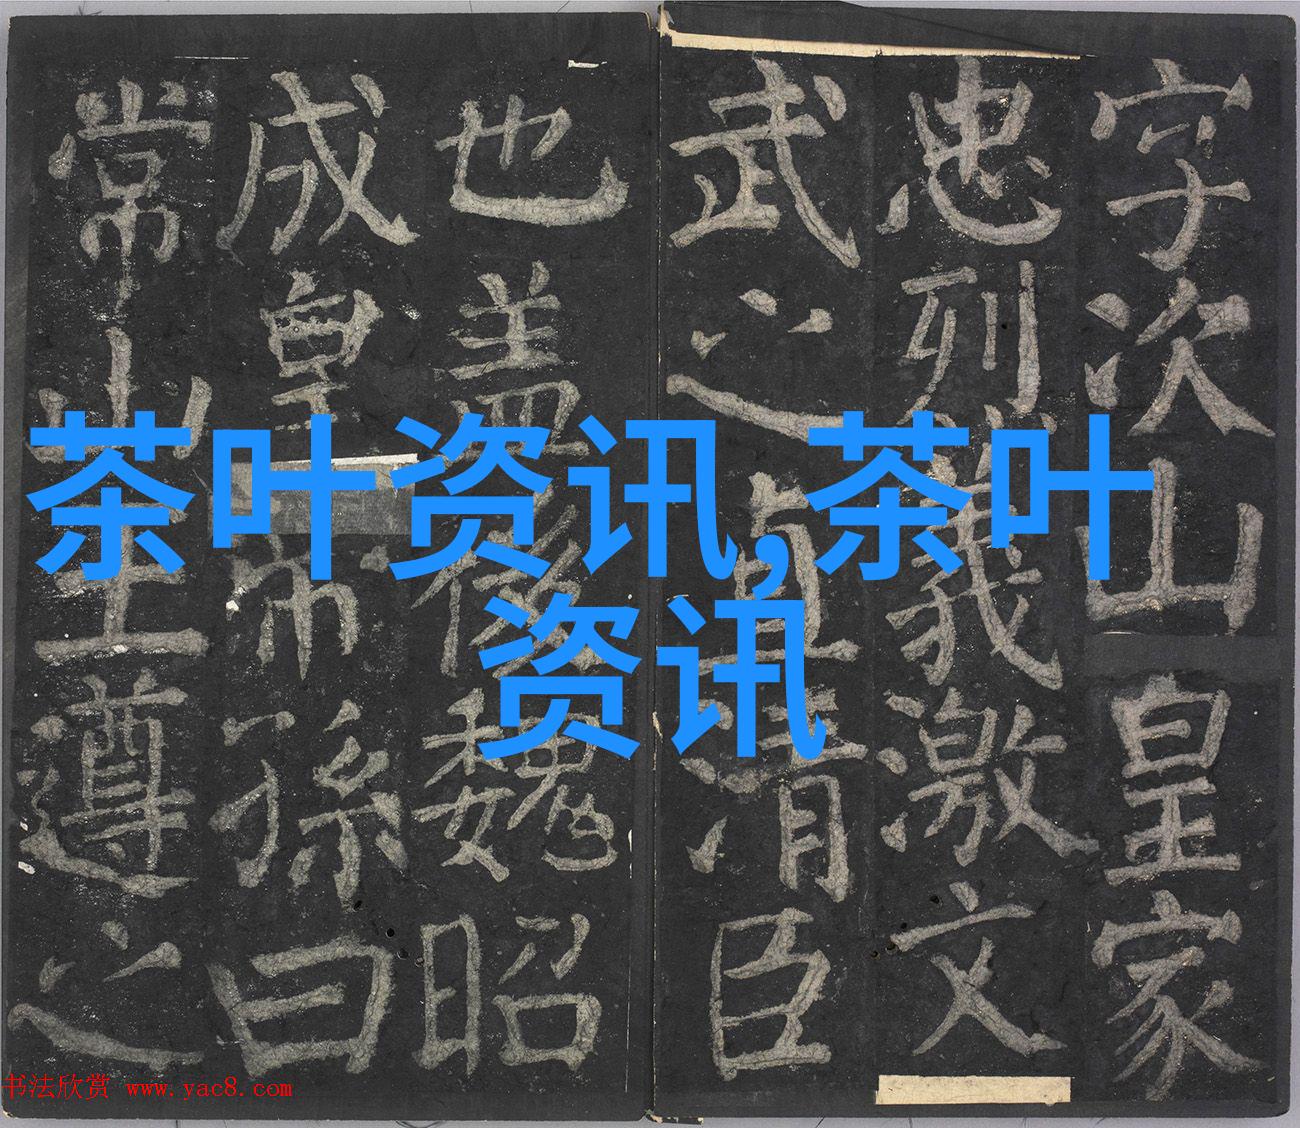 字次山皇家
忠烈義激文
武之直清臣
也盖後魏昭
成皇帝孫曰
常山王遵之
茶叶资讯,茶叶
资讯
书法欣赏 www.yac8.com